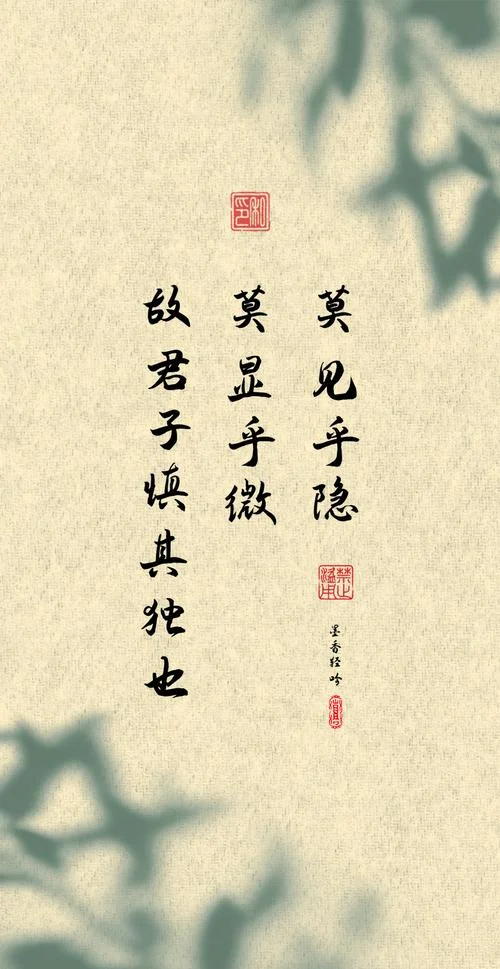 莫见乎隐
莫显乎微
故君子慎其独也
墨香轻吟
禁止
滥用